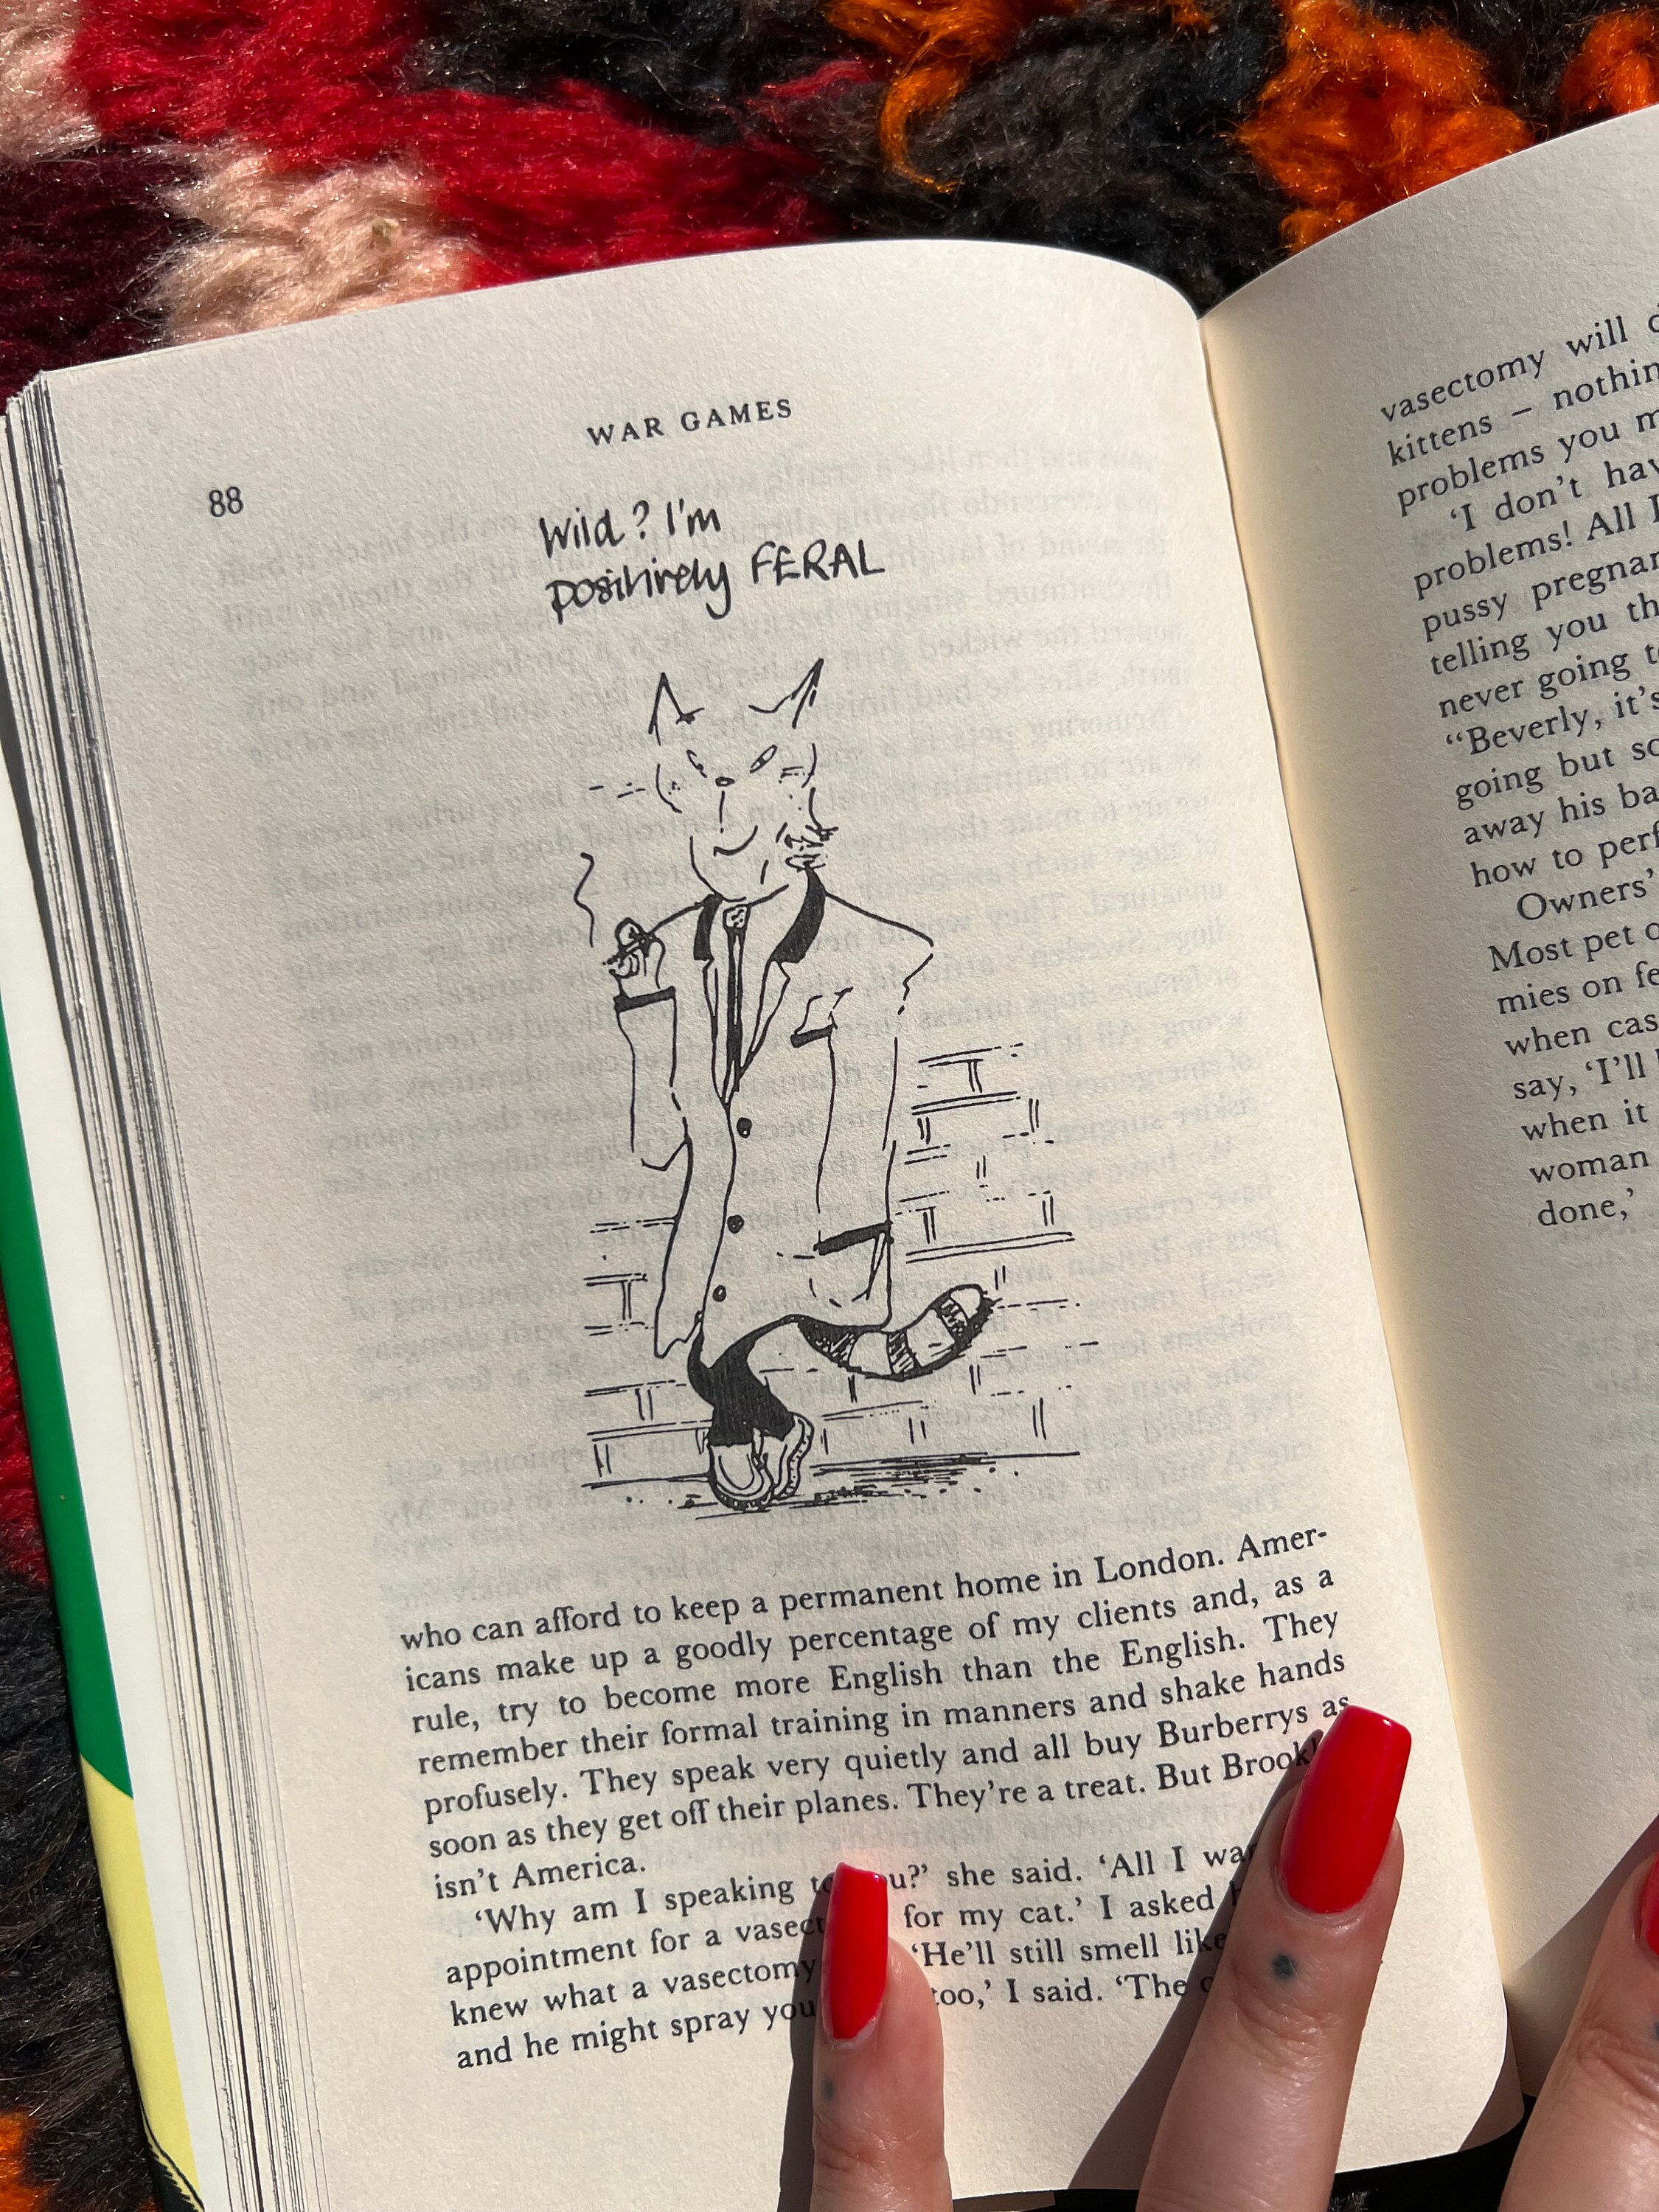 WAR GAMES
88
Wild? I'm
positively FERAL
who can afford to keep a permanent home in London. Amer-
icans make up a goodly percentage of my clients and, as a
rule, try to become more English than the English. They
remember their formal training in manners and shake hands
profusely. They speak very quietly and all buy Burberrys as
soon as they get off their planes. They're a treat. But
isn't America.
'Why am I speaking she said. 'All I
appointment for a for my cat.' I asked
knew what a vasectomy 'He'll still smell like
and he might spray too,' I said. 'The
vasectomy will
kittens –
problems you
'I don't
problems! All
pussy
telling you
never going
"Beverly, it's
going but
away his
how to
Owners'
Most pet
mies on
when
say, 'I'll
when it
woman
done,'